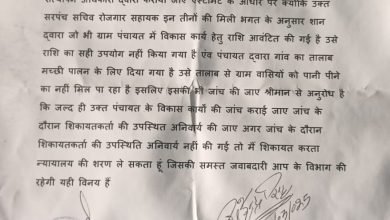 सत्यापन अधिकारी द्वारा कराया जाए एस्टीमेट के आधार पर क्योंकि उक्त
सरपंच सचिव रोजगार सहायक इन तीनों की मिली भगत के अनुसार शान
द्वारा जो भी ग्राम पंचायत में विकास कार्य हेतु राशि आवंटित की गई है उसे
राशि का सही उपयोग नहीं किया गया है एंव पंचायत द्वारा गांव का तालाब
मच्छी पालन के लिए दिया गया है उसे तालाब से ग्राम वासियों को पानी पीने
का नहीं मिल पा रहा है इसलिए इसकी भी जांच की जाए श्रीमान से अनुरोध है
कि जल्द ही उक्त पंचायत के विकास कार्यों की जांच कराई जाए जांच के
दौरान शिकायतकर्ता की उपस्थित अनिवार्य की जाए अगर जांच के दौरान
शिकायतकर्ता की उपस्थिति अनिवार्य नहीं की गई तो मैं शिकायत करता
न्यायालय की शरण ले सकता हूं जिसकी समस्त जवाबदारी आप के विभाग की
रहेगी यही विनय हैं